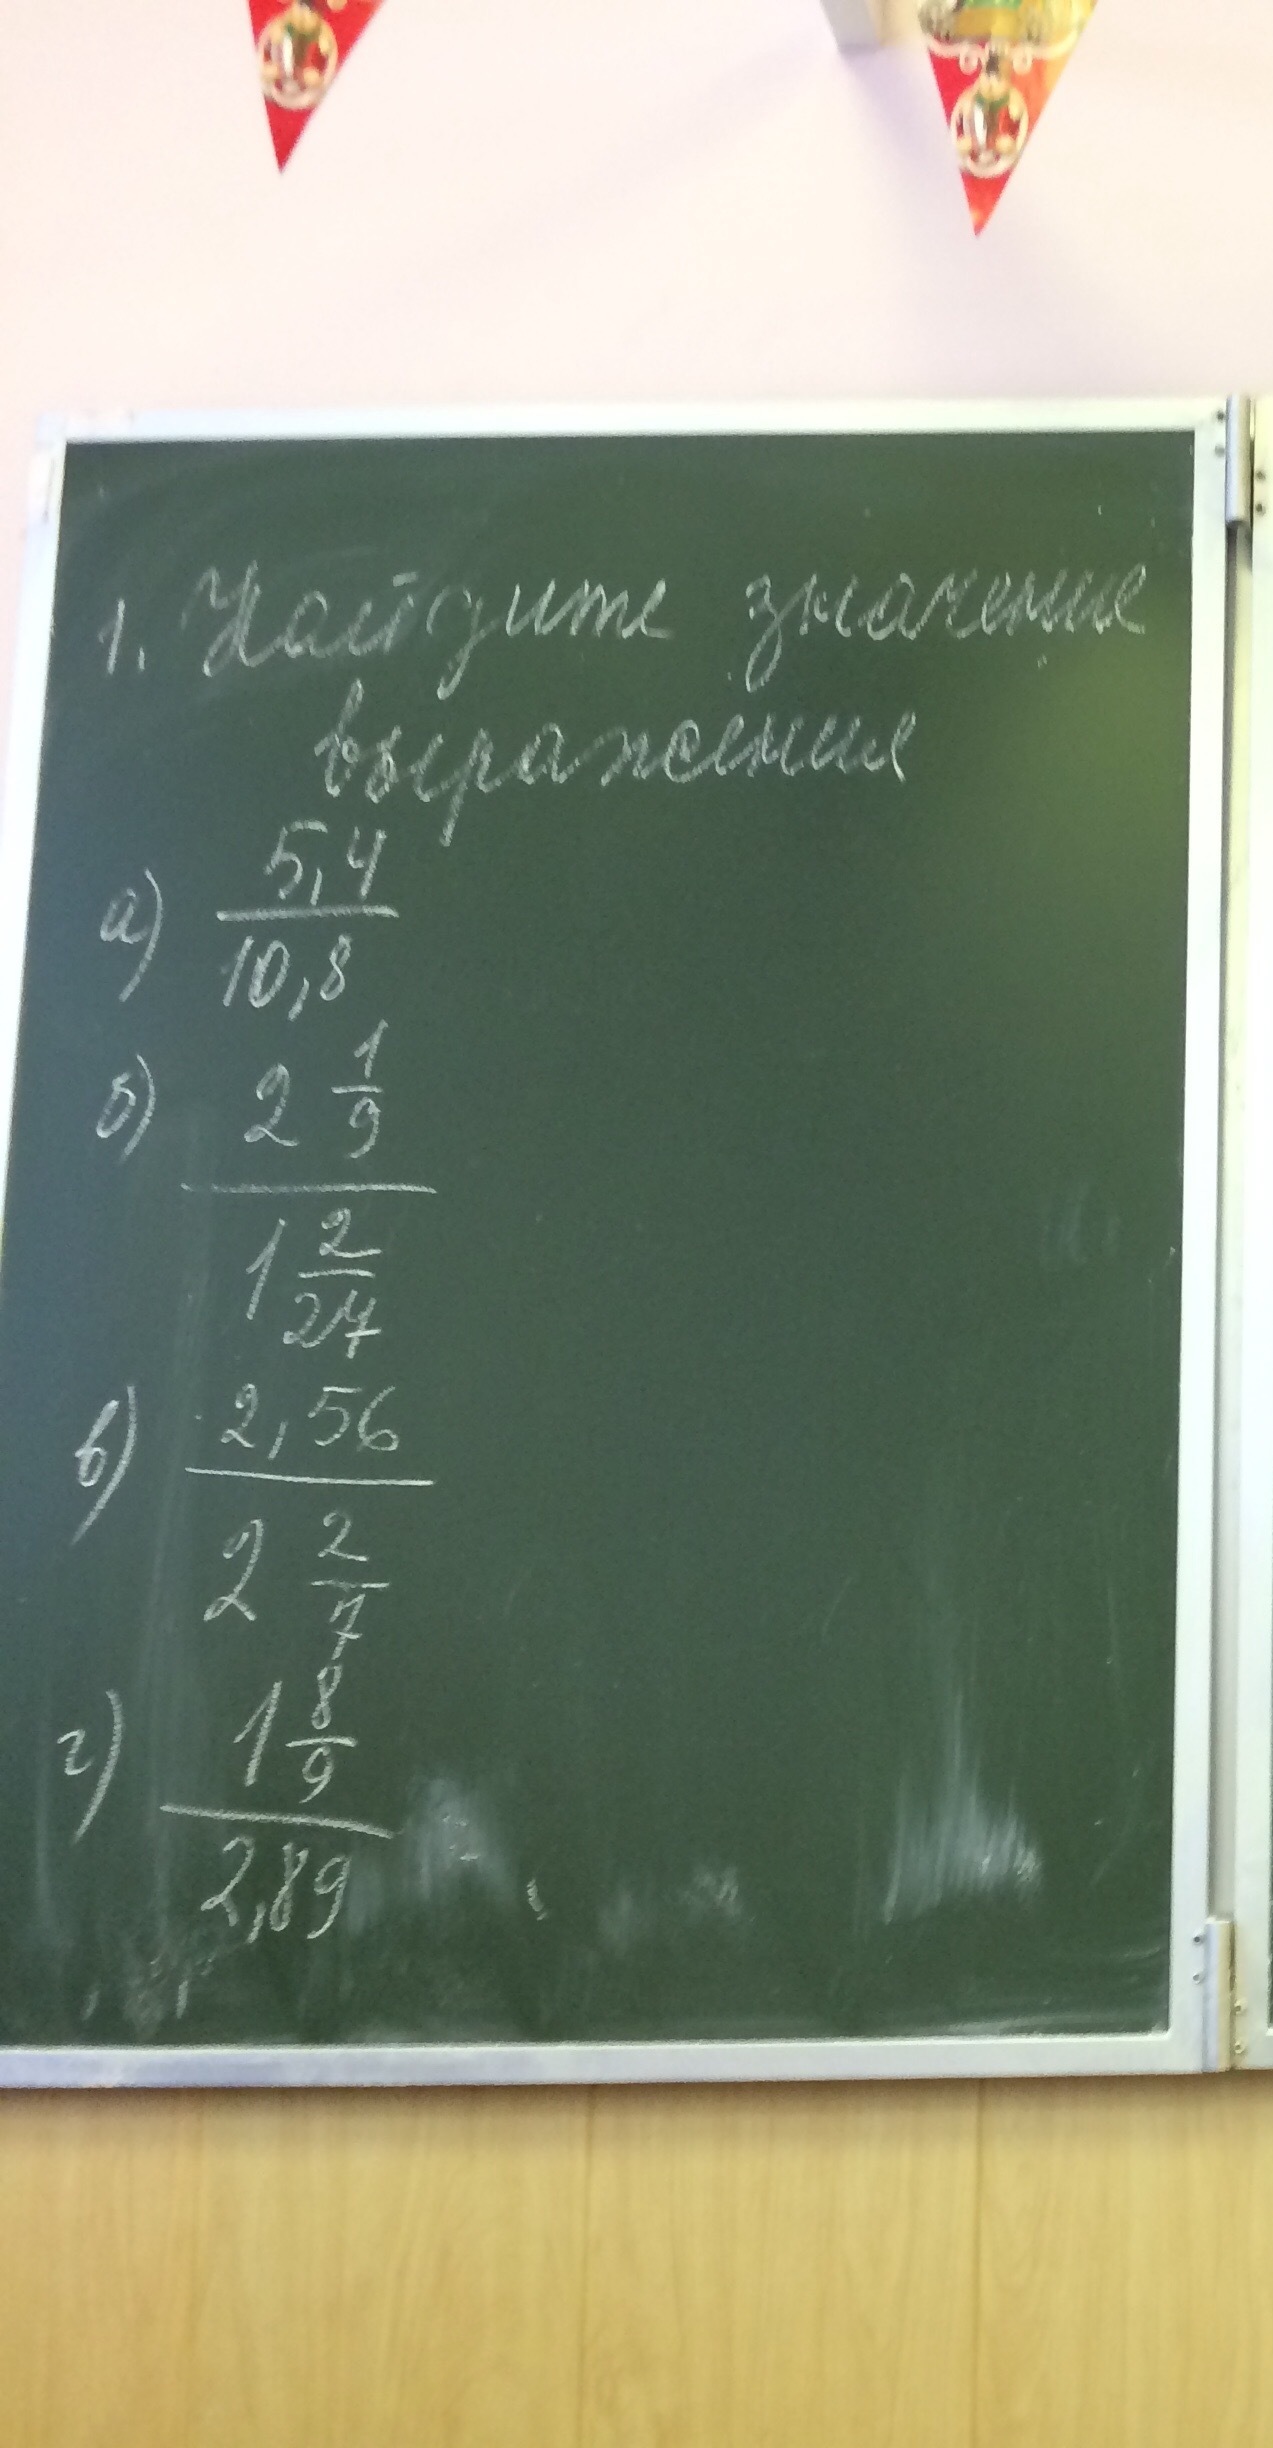 1. Найдите значение
выражения
а) 5,4
10,8
б) 2 1/9
1 2/27
в) 2,56
2 2/7
г) 1 8/9
2,89